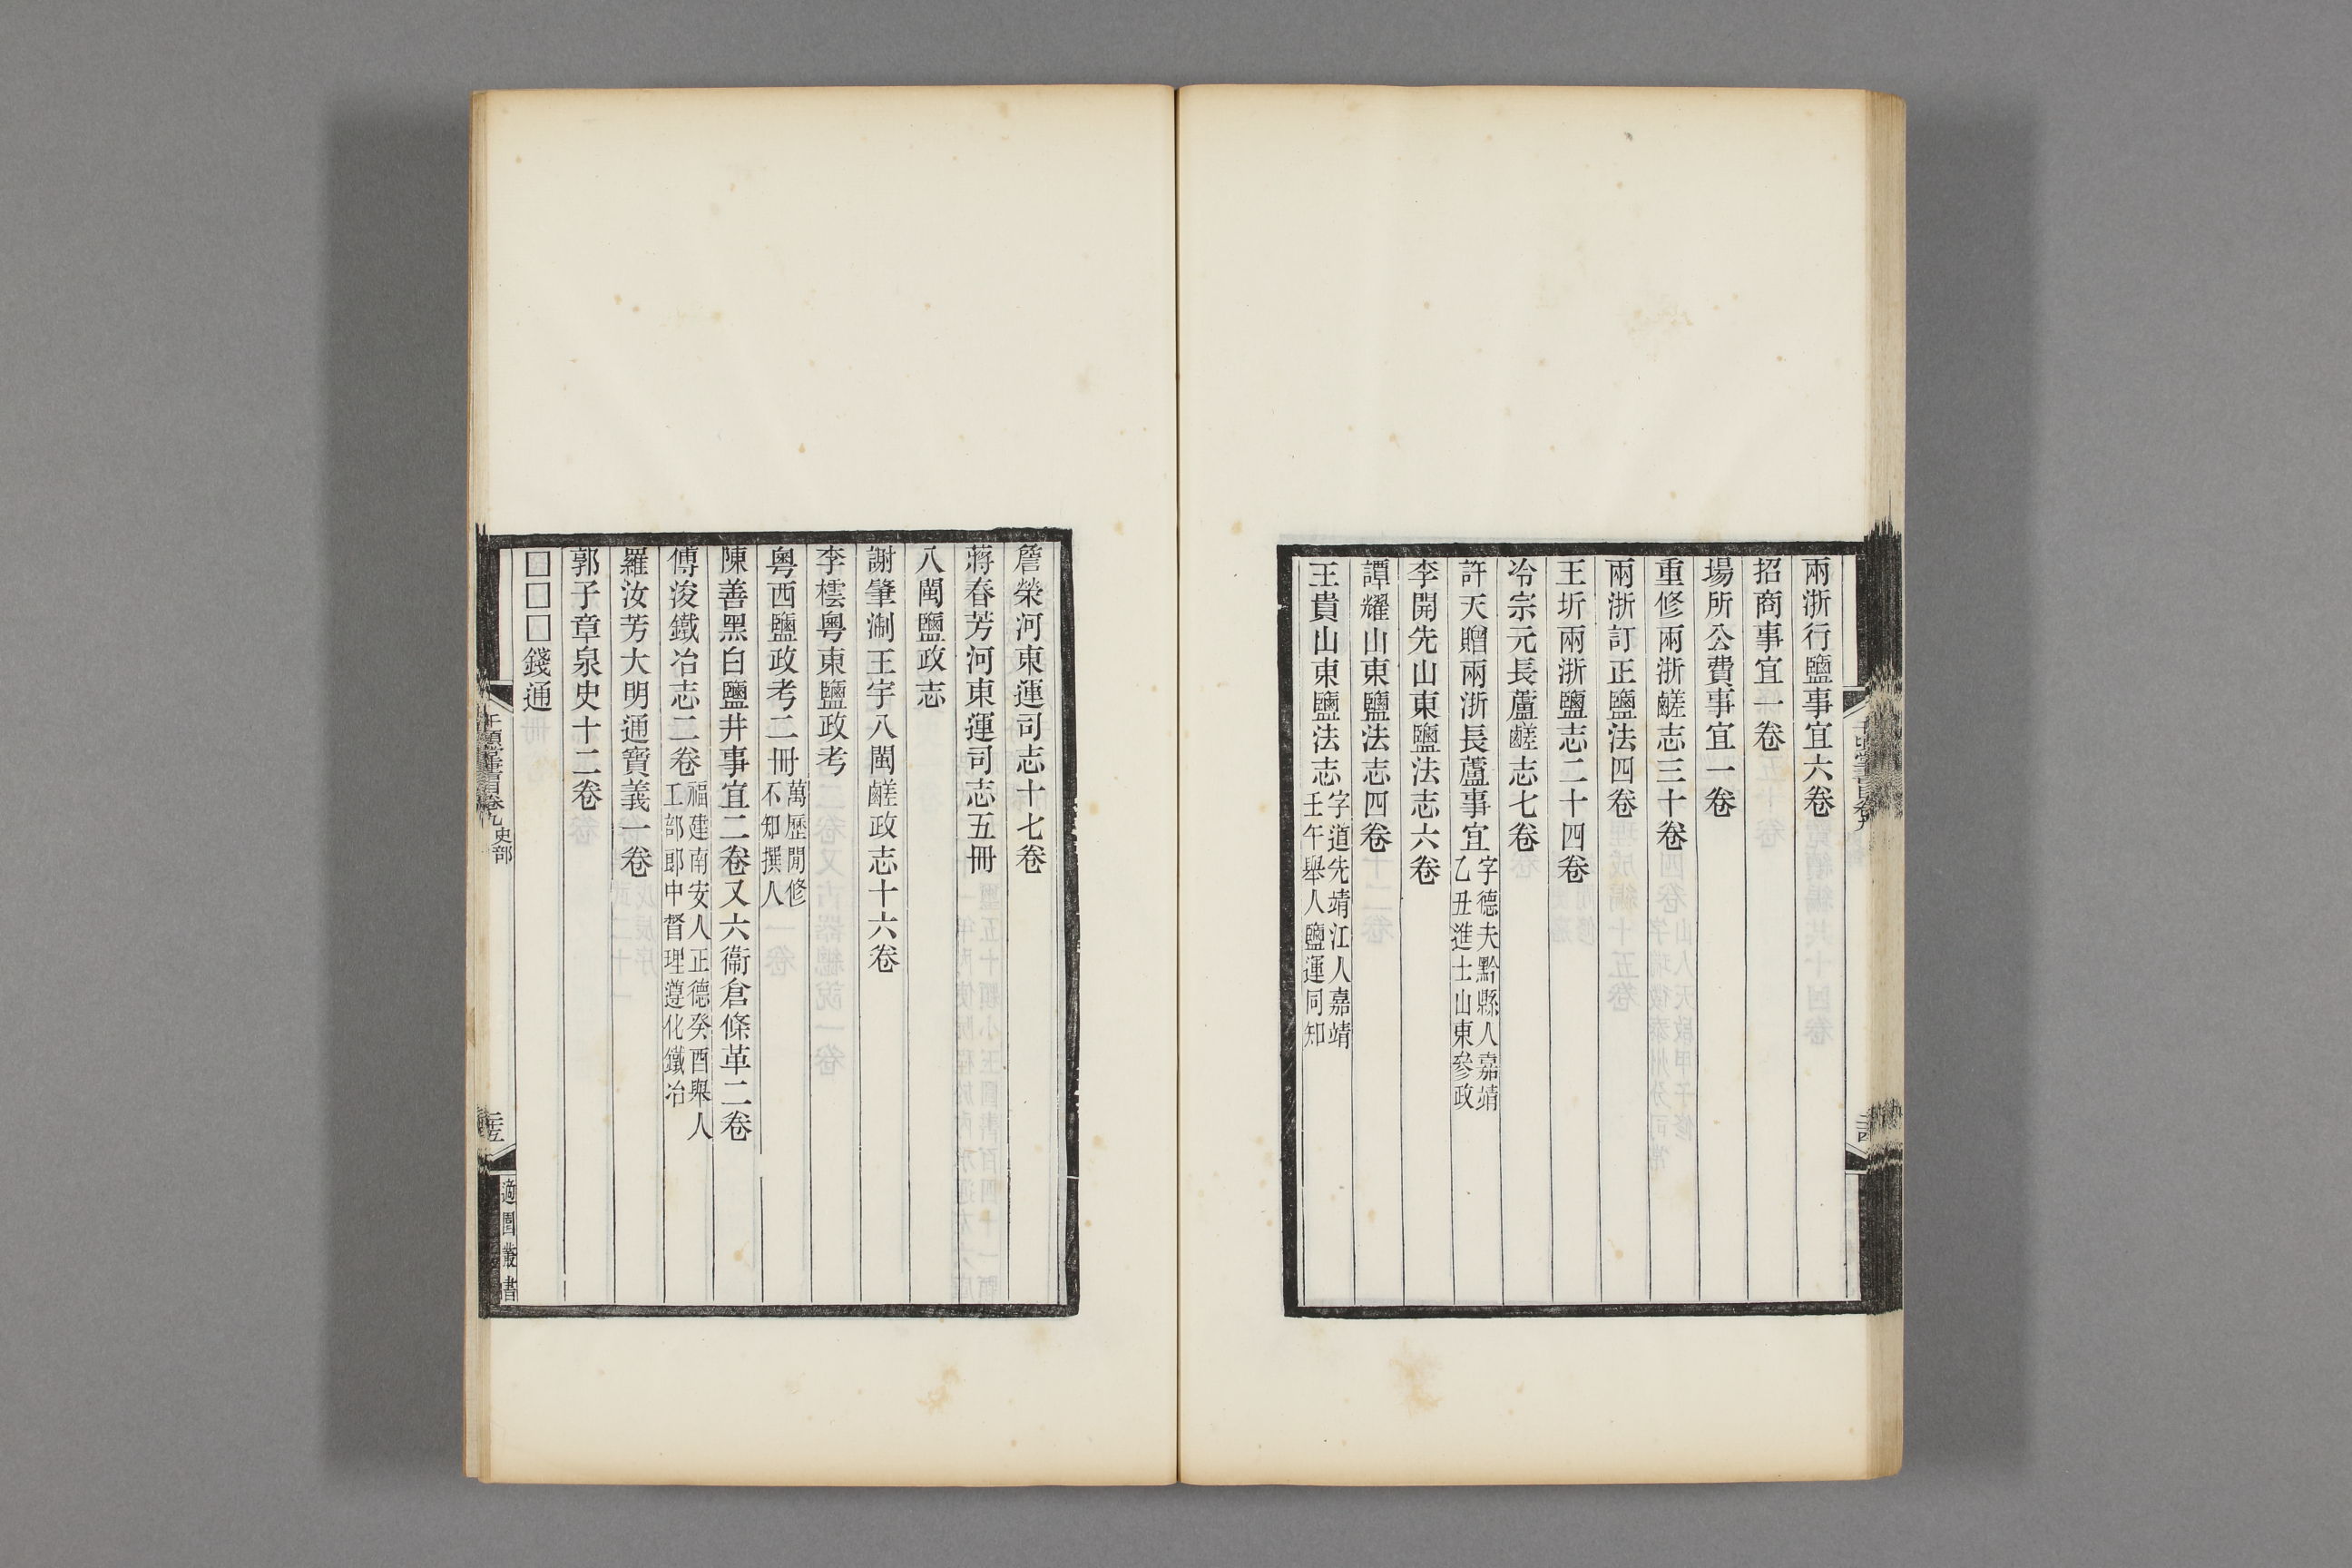 兩浙行鹽事宜六卷
招商事宜一卷
場所公費事宜一卷
重修兩浙鹺志三十卷
兩浙訂正鹽法四卷
王圻兩浙鹽志二十四卷
冷宗元長蘆鹺志七卷
許天贈兩浙長蘆事宜字德夫黔縣人嘉靖乙丑進士山東參政
李開先山東鹽法志六卷
譚耀山東鹽法志四卷
王貴山東鹽法志字道先靖江人嘉靖壬午舉人鹽運同知
詹榮河東運司志十七卷
蔣春芳河東運司志五冊
八閩鹽政志
謝肇淛王宇八閩鹺政志十六卷
李橒粵東鹽政考
粵西鹽政考二冊萬歷閒修不知撰人
陳善黑白鹽井事宜二卷又六衞倉條革二卷
傅浚鐵冶志二卷福建南安人正德癸酉舉人工部郎中督理遵化鐵冶
羅汝芳大明通寶義一卷
郭子章泉史十二卷
□□□錢通
千頃堂書目卷九 史部
二十五
適園叢書